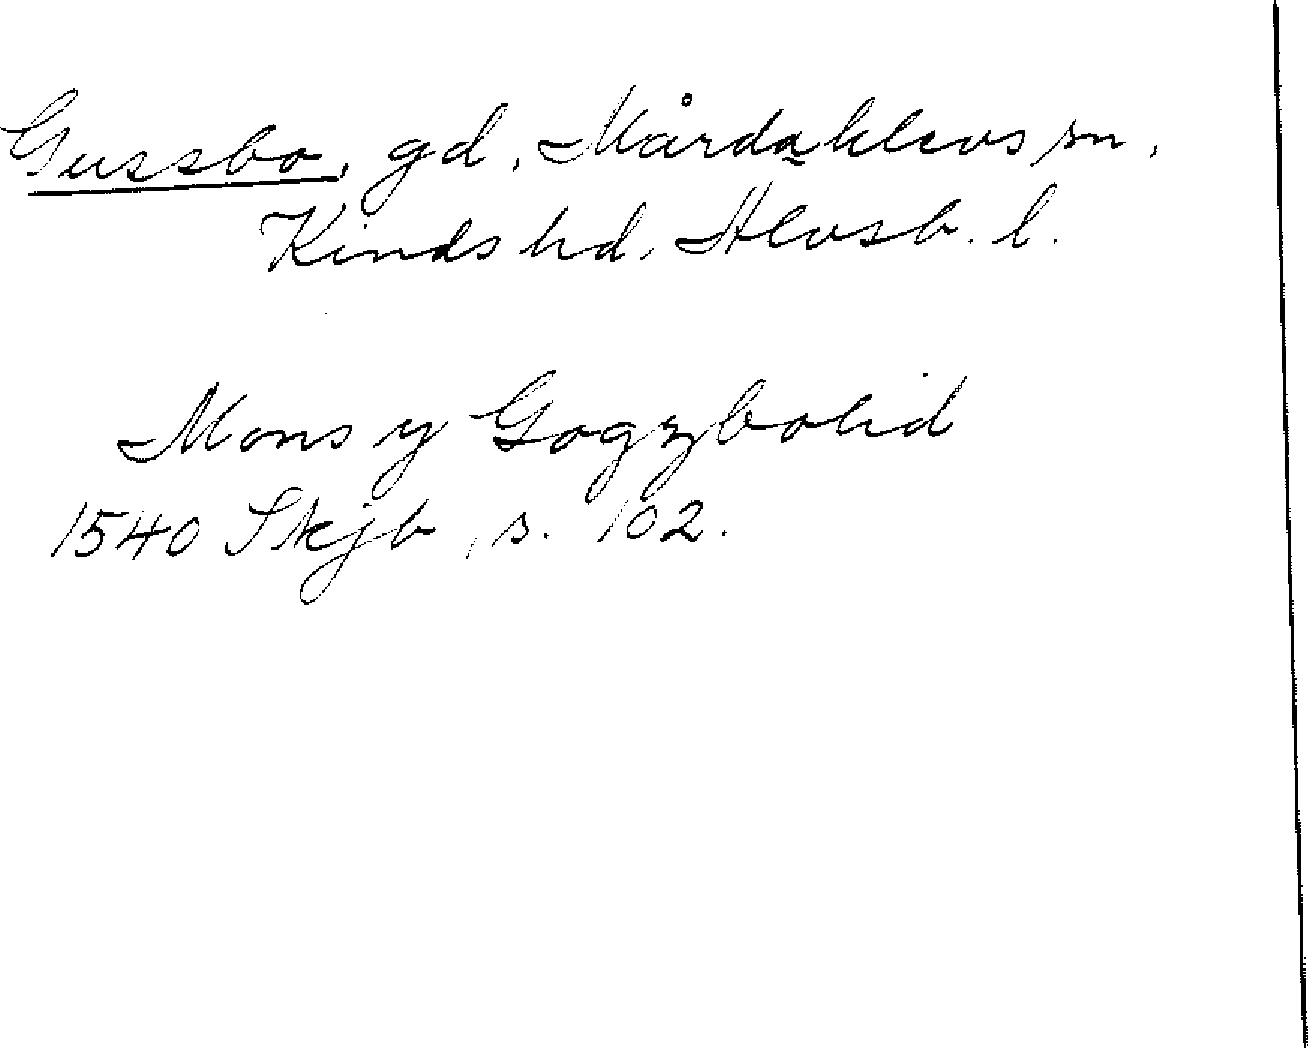 Gussbo, gd, Mårdaklevs sn,
Kinds hd, Älvsb. l.
Mons y Gogzbolid
1540 Skjb, s. 102.